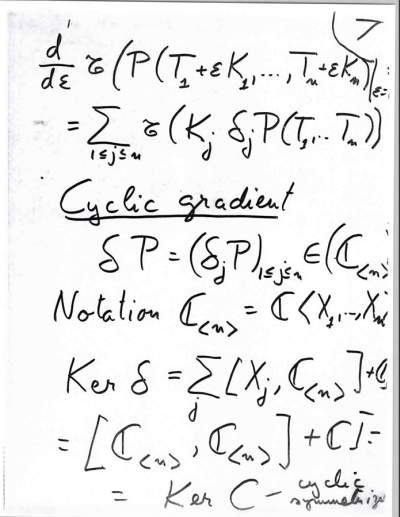 7
d/dε τ(P(T₁+εK₁,…,Tₙ+εKₙ))|ε=
= ∑_{1≤j≤n} τ(K_j δ_jP(T₁,..Tₙ))
Cyclic gradient
δP = (δ_jP)_{1≤j≤n} ∈ (ℂ_{<n>}
Notation ℂ_{<n>} = ℂ<X₁,..,Xₙ
Ker δ = ∑_j [X_j, ℂ_{<n>}] + ℂ
= [ℂ_{<n>}, ℂ_{<n>}] + ℂ1 =
= Ker C – cyclic
symmetriz